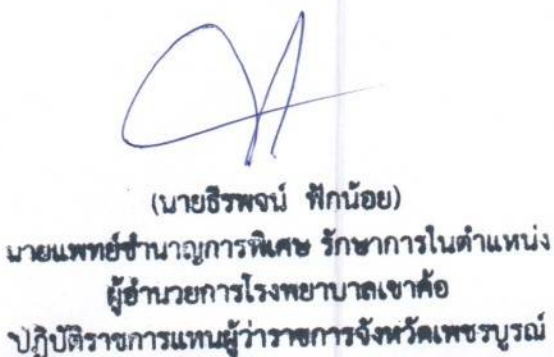 (นายธีรพจน์ ฟักน้อย)
นายแพทย์ชำนาญการพิเศษ รักษาการในตำแหน่ง
ผู้อำนวยการโรงพยาบาลเขาค้อ
ปฏิบัติราชการแทนผู้ว่าราชการจังหวัดเพชรบูรณ์